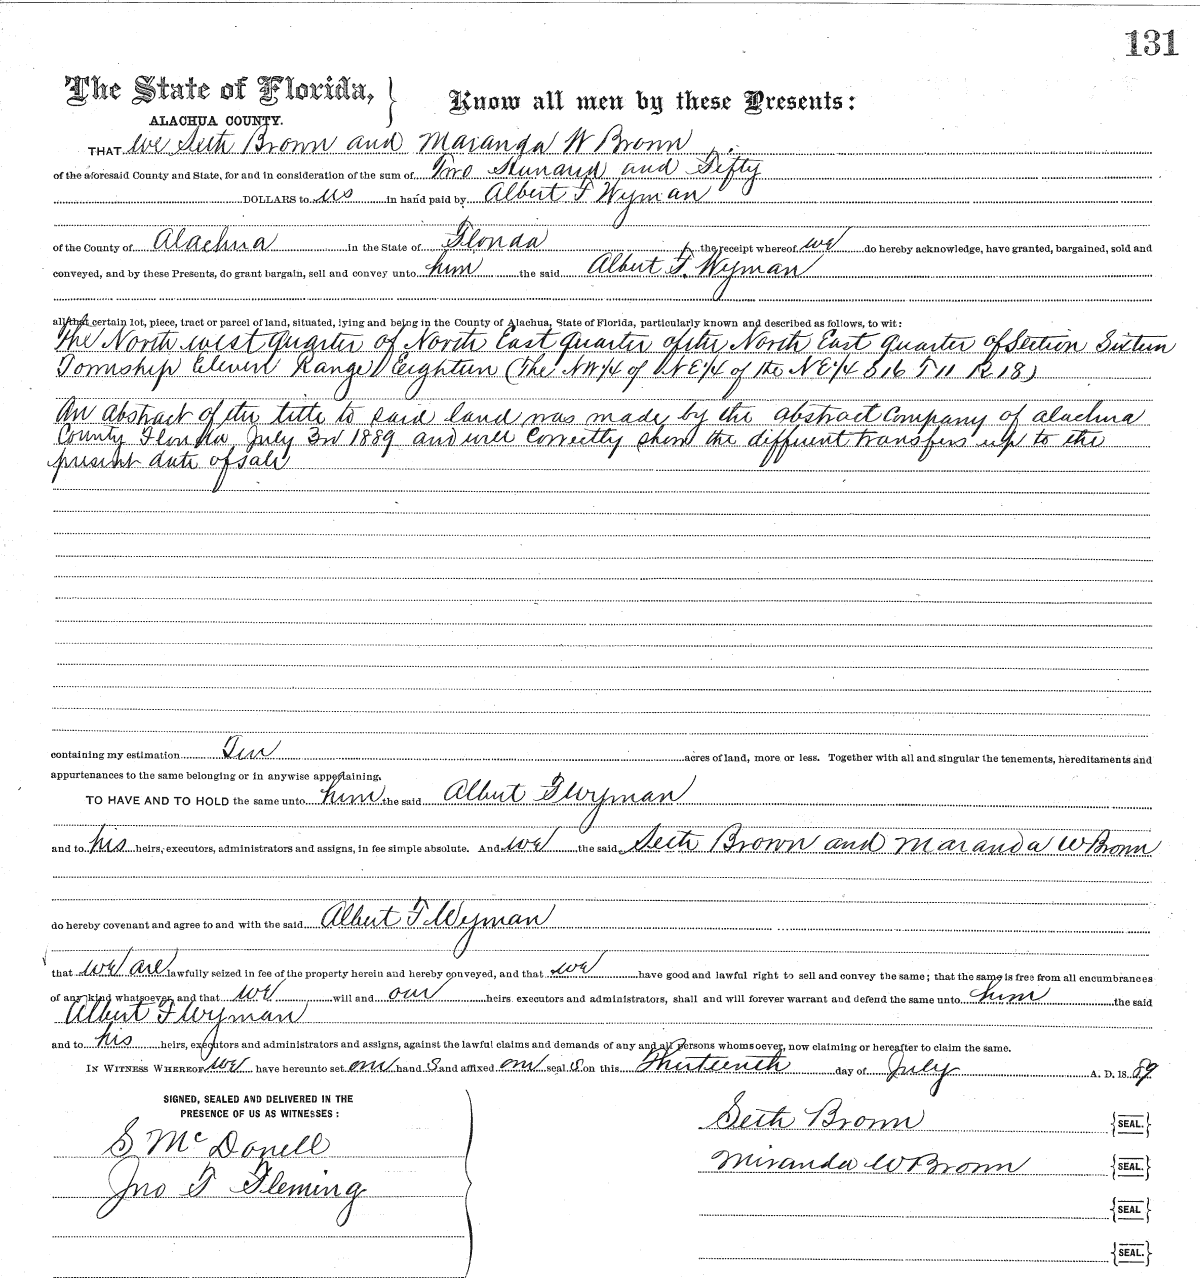 131
The State of Florida, } Know all men by these Presents:
ALACHUA COUNTY.
THAT we Seth Brown and Maranda W Brown
of the aforesaid County and State, for and in consideration of the sum of Two Hundred and Fifty
DOLLARS to us in hand paid by Albert F Wyman
of the County of Alachua in the State of Florida the receipt whereof we do hereby acknowledge, have granted, bargained, sold and
conveyed, and by these Presents, do grant bargain, sell and convey unto him the said Albert F. Wyman
all that certain lot, piece, tract or parcel of land, situated, lying and being in the County of Alachua, State of Florida, particularly known and described as follows, to wit:
The North west Quarter of North East quarter of the North East Quarter of Section Sixteen
Township Eleven Range Eighteen (The NW¼ of NE¼ of the NE¼ S16 T11 R18)
An abstract of the title to said land was made by the abstract Company of Alachua
County Florida July 3rd 1889 and will correctly show the different transfers up to the
present date of sale
containing my estimation Ten acres of land, more or less. Together with all and singular the tenements, hereditaments and
appurtenances to the same belonging or in anywise appertaining.
TO HAVE AND TO HOLD the same unto him the said Albert F Wyman
and to his heirs, executors, administrators and assigns, in fee simple absolute. And we the said Seth Brown and Maranda W Brown
do hereby covenant and agree to and with the said Albert F Wyman
that we are lawfully seized in fee of the property herein and hereby conveyed, and that we have good and lawful right to sell and convey the same; that the same is free from all encumbrances
of any kind whatsoever, and that we will and our heirs. executors and administrators, shall and will forever warrant and defend the same unto him the said
Albert F Wyman
and to his heirs, executors and administrators and assigns, against the lawful claims and demands of any and all persons whomsoever, now claiming or hereafter to claim the same.
IN WITNESS WHEREOF we have hereunto set our hand s and affixed our seal s on this Thirteenth day of July A. D. 18 89
SIGNED, SEALED AND DELIVERED IN THE
PRESENCE OF US AS WITNESSES:
S McDonell
Jno F Fleming
Seth Brown {SEAL.}
Miranda W Brown {SEAL.}
{SEAL}
{SEAL.}